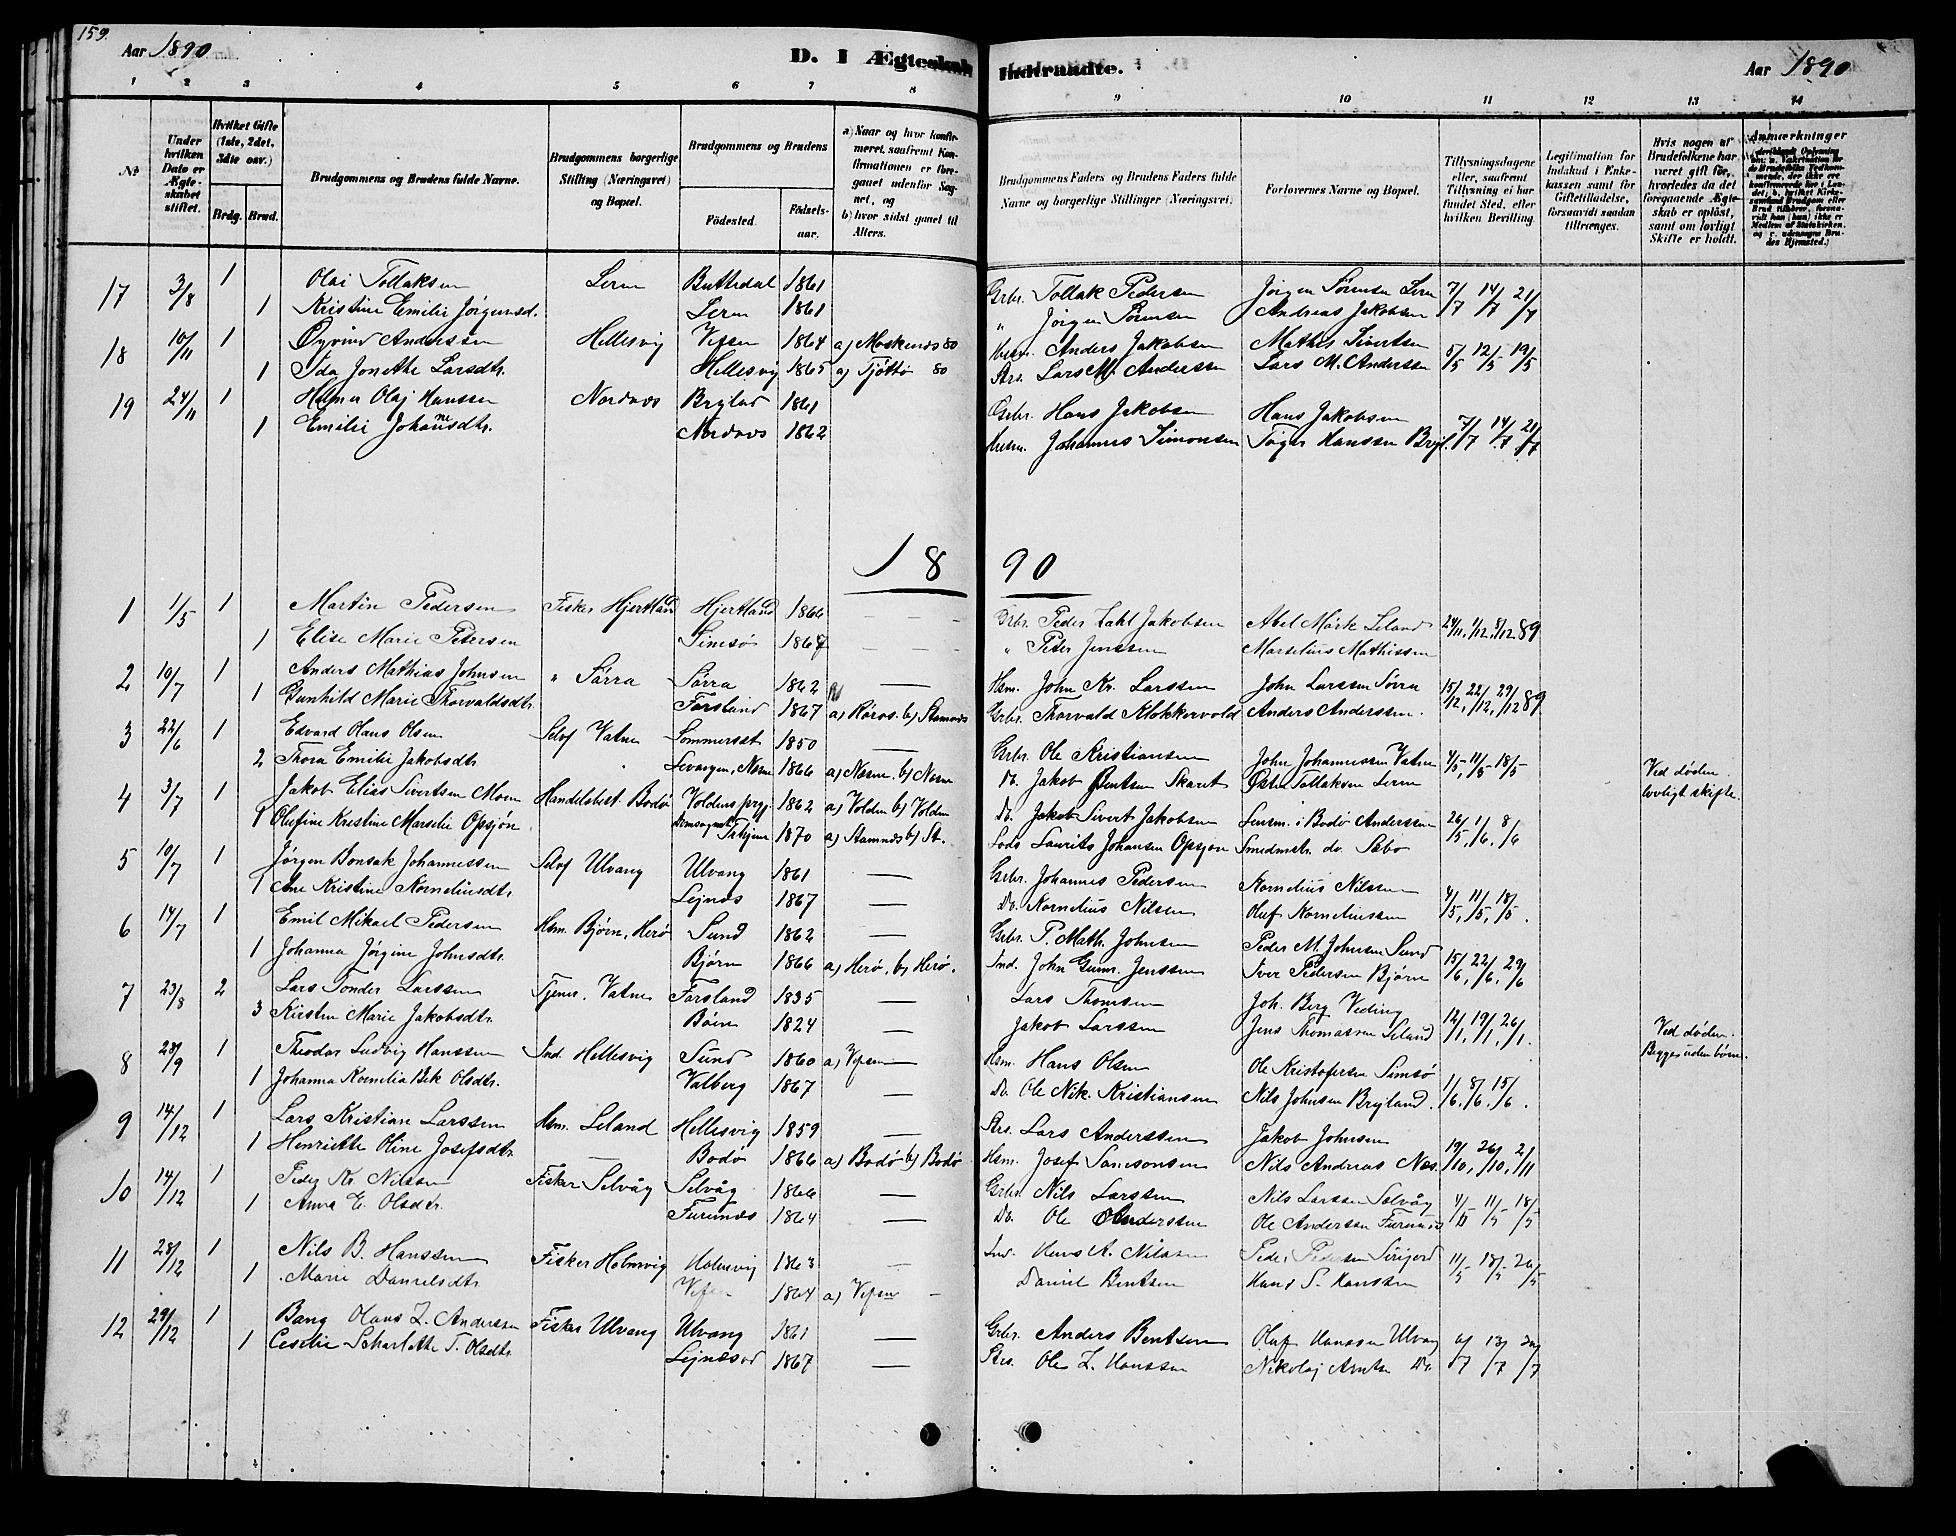 159.
Aar 1890
D. I Ægteskab Indtraadte.
Aar 1890
1 2 3 4 5 6 7 8 9 10 11 12 13 14
No
Under hvilken Dato er Ægteskabet stiftet.
Hvilket Gifte (1ste, 2det, 3die osv.)
Brdg. Brud.
Brudgommens og Brudens fulde Navne.
Brudgommens borgerlige Stilling (Næringsvei) og Bopæl.
Brudgommens og Brudens
Fødested. Fødselsaar.
a) Naar og hvor konfirmeret, saafremt Konfirmationen er foregaaet udenfor Sognet, og
b) hvor sidst gaaet til Alters.
Brudgommens Faders og Brudens Faders fulde Navne og borgerlige Stillinger (Næringsvei)
Forlovernes Navne og Bopæl.
Tillysningsdagene eller, saafremt Tillysning ei har fundet Sted, efter hvilken Bevilling.
Legitimation for Indskud i Enkekassen samt for Giftetilladelse, forsaavidt saadan tiltrænges.
Hvis nogen af Brudefolkene har været gift før, hvorledes da det foregaaende Ægteskab er opløst, samt om lovligt Skifte er holdt.
Anmærkninger
17 3/8 1 Olai Tollaksen Lerm Buttedal 1861 Grbr. Tollak Pedersen Jørgen Sørensen Lerm 7/7 14/7 21/7
1 Kristine Emilie Jørgensd. Lerm 1861 " Jørgen Sørensen Andreas Jakobsen
18 10/11 1 Øyvind Anderssen Hellesvig Vefsen 1864 a) Moskenes 80 Husm. Anders Jakobsen Mathis Sivertsen 5/5 12/5 19/5
1 Ida Jonette Larsdtr. Hellesvig 1865 a) Tjøttø 80 Strs. Lars M. Anderssen Lars M. Anderssen
19 24/11 1 Helmer Olaj Hanssen Nordnæs Brejlad 1861 Grbr. Hans Jakobsen Hans Jakobsen 7/7 14/7 21/7
1 Emilie Johannedtr. Nordnæs 1862 Husm. Johannes Simonsen Tøger Hanssen Brejl.
1890
1 1/5 1 Martin Pedersen Fisker Hjertland Hjertland 1866 Grbr. Peder Zahl Jakobsen Abel Mørk Leland 24/11, 1/12, 8/12 89
1 Elise Marie Petersen Simsø 1867 " Peter Jenssen Marselius Mathissen
2 10/7 1 Anders Mathias Johnsen " Sørra Sørra 1862 — Hsm. John Kr. Larssen John Larssen Sørra 15/12, 22/12, 29/12 89
1 Gunhild Marie Thorvaldsdtr. Forsland 1867 a) Røros. b) Stamnæs Grbr. Thorvald Klokkervold Anders Anderssen.
3 22/6 1 Edvard Hans Olsen Selvf Vatne Sommerset 1850 — Grbr. Ole Kristiansen John Johannessen Vatne 4/5, 11/5 18/5
2 Thora Emilie Jakobsdtr. Levangen, Næsne 1866 a) Næsne. b) Næsne Do. Jakob Bentsen Skaret Østen Tollaksen Lerm Ved døden. lovligt skifte.
4 3/7 1 Jakob Elias Sivertsen Moen Handelsbest. Bodø Voldens prgj. 1862 a) Volden b) Volden Do. Jakob Sivert Jakobsen Lensm. i Bodø Anderssen 26/5, 1/6, 8/6
1 Olufine Kristine Marselie Opsjøn 1870 a) Stamnæs b) St. Lods Laurits Johansen Opsjøn Smedmstr. do. Sæbø
5 10/7 1 Jørgen Bonsak Johannessen Selvf Ulvang Ulvang 1861 — Grbr. Johannes Pedersen Kornelius Nilssen 4/5, 11/5, 18/5.
1 Ane Kristine Korneliusdtr. Lejnæs 1867 — Do. Kornelius Nilsen Oluf Korneliussen
6 14/7 1 Emil Mikael Pedersen Hsm. Bjørn, Herø Sund 1862 — Grbr. P. Math. Johnsen Peder M. Johnsen Sund 15/6, 22/6, 29/6
1 Johanna Jørgine Johnsdtr. Bjørn 1866 a) Herø, b) Herø. Ind. John Gunnr. Jenssen Iver Pedersen Bjørn
7 23/8 2 Lars Tonder Larssen Tjener, Vatne Forsland 1835 — Lars Thomsen Joh. Berg Veding 12/1, 19/1, 26/1.
3 Kirsten Marie Jakobsdtr. Bøen 1824 — Jakob Larssen Jens Thomassen Leland Ved døden. Begge uden børn.
8 28/9 1 Theodor Ludvig Hanssen Ind. Hellesvig Sund 1860 a) Vefsen Hsm. Hans Olsen Ole Kristofersen Simsø 1/6, 8/6, 15/6.
1 Johanna Kornelia Bek Olsdtr. Valberg 1867 — Do. Ole Nik. Kristiansen Nils Johnsen Brejland.
9 14/12 1 Lars Kristian Larssen Hsm. Leland Hellesvig 1859 — Strs. Lars Anderssen Jakob Johnsen 19/10, 26/10, 2/11
1 Henriette Oline Josefsdtr. — Bodø 1866 a) Bodø b) Bodø Hsm. Josef Samsonsen Nils Andreas Næs.
10 14/12 1 Peder Kr. Nilssen Fisker Selvåg Selvåg 1866 — Grbr. Nils Larssen Nils Larssen Selvåg 4/5 11/5 18/5
1 Anna E. Olsdtr. Furunæs 1864 — Do. Ole Anderssen Ole Anderssen Furunæs
11 28/12 1 Nils B. Hanssen Fisker Holmvig Holmvig 1863 — Ind. Hans A. Nilssen Peder Pedersen 11/5 18/5 26/5
1 Marie Danielsdtr. Vefsen 1864 a) Vefsen — Daniel Bentsen Hans S. Hanssen
12 29/12 1 Bang Hans Z. Anderssen Fisker Ulvang Ulvang 1861 — Grbr. Anders Bentsen Oluf Hanssen Ulvang 6/7 13/7 20/7
1 Cesilie Scharlotte T. Olsdtr. Lejnæsod 1867 — Strs. Ole Z. Hanssen Nikolaj Arntsen Do.